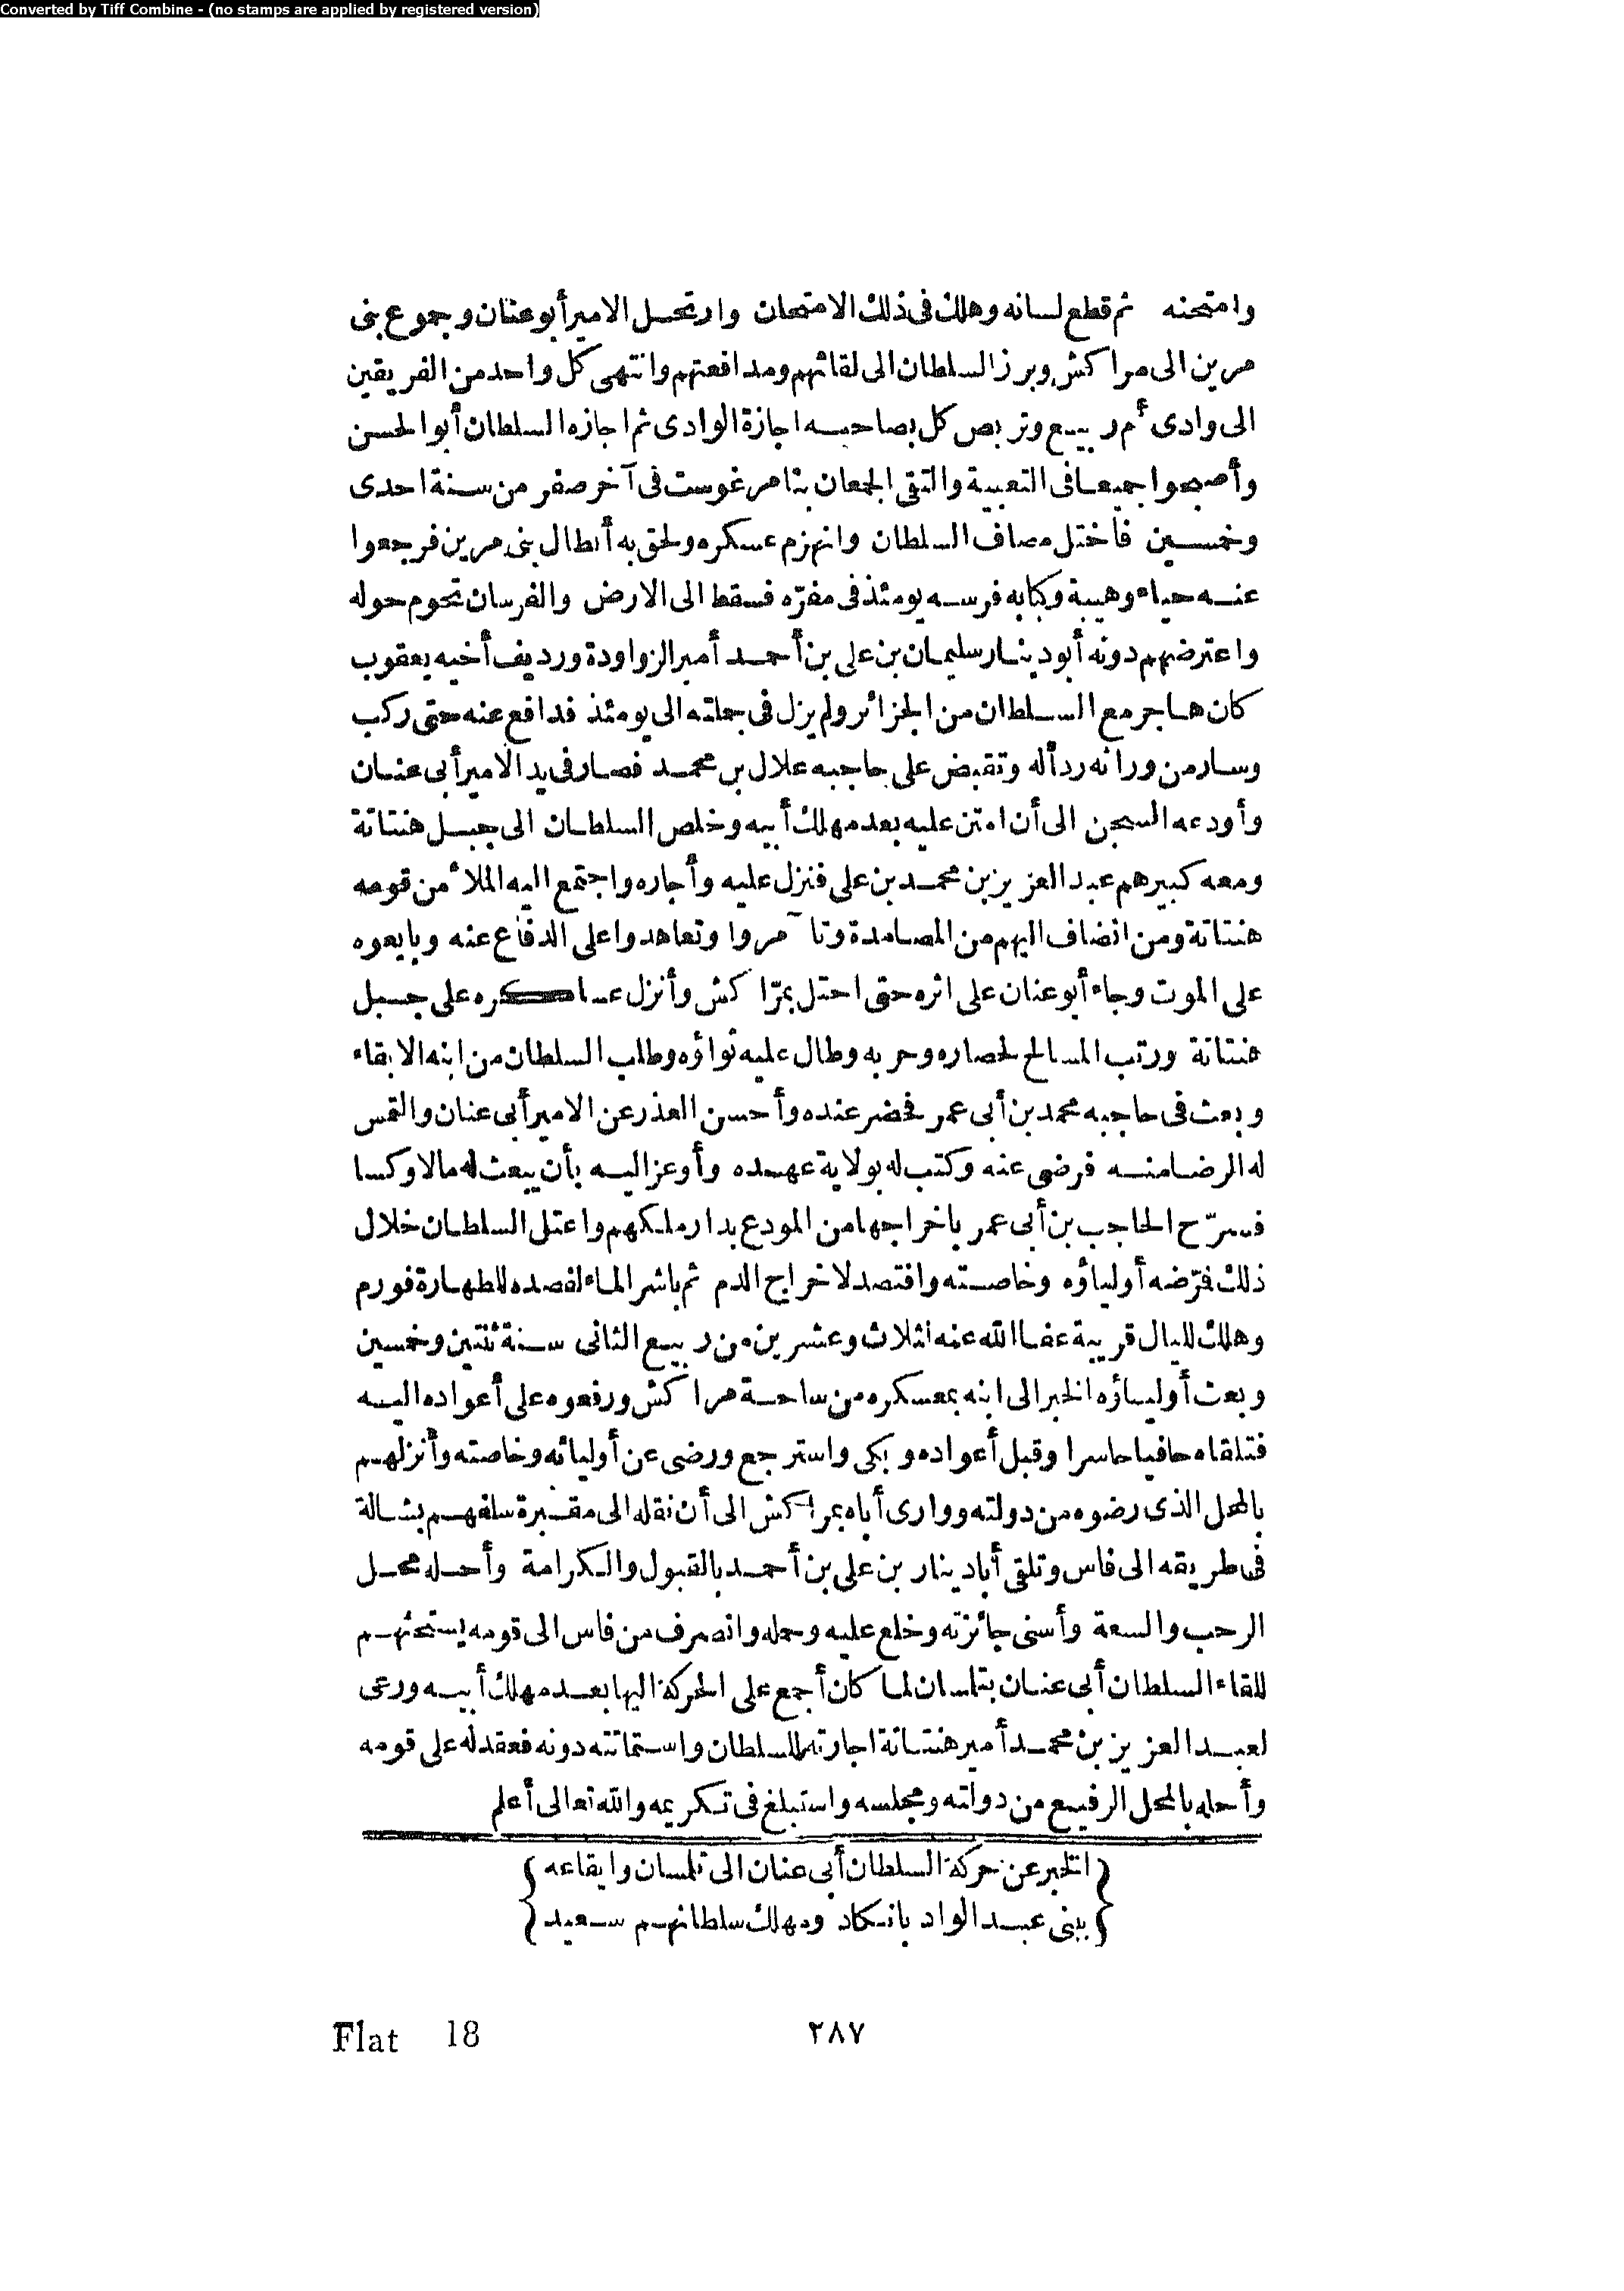 Converted by Tiff Combine - (no stamps are applied by registered version)
وامتحنه ثم قطع لسانه وهلك فى ذلك الامتحان وارتحل الامير أبو عنان وجموع بنى
مرين الى مراكش وبرز السلطان الى لقائهم ومدافعتهم وانتهى كل واحد من الفريقين
الى وادى أم ربيع وتربص كل بصاحبه اجازة الوادى ثم اجازه السلطان أبو الحسن
وأصبحوا جميعا فى التعبية والتقى الجمعان بتامرغوست فى آخر صفر من سنة احدى
وخمسين فاختل مصاف السلطان وانهزم عسكره ولحق به أبطال بنى مرين فرجعوا
عنه حياء وهيبة وكبا به فرسه يومئذ فى مفرّه فسقط الى الارض والفرسان تحوم حوله
واعترضهم دونه أبو دينار سليمان بن على بن أحمد أمير الزواودة ورديف أخيه يعقوب
كان هاجر مع السلطان من الجزائر ولم يزل فى جملته الى يومئذ فدافع عنه حتى ركب
وسار من ورائه ردأ له وتقبض على حاجبه علال بن محمد فصار فى يد الامير أبى عنان
وأودعه السجن الى أن امتن عليه بعد مهلك أبيه وخلص السلطان الى جبل هنتاتة
ومعه كبيرهم عبد العزيز بن محمد بن على فنزل عليه وأجاره واجتمع اليه الملأ من قومه
هنتاتة ومن انضاف اليهم من المصامدة وتآمروا وتعاهدوا على الدفاع عنه وبايعوه
على الموت وجاء أبو عنان على اثره حتى احتل بمرّاكش وأنزل عساكره على جبل
هنتاتة ورتب المسالح لحصاره وحربه وطال عليه ثواؤه وطلب السلطان من ابنه الابقاء
وبعث فى حاجبه محمد بن أبى عمر فحضر عنده وأحسن العذر عن الامير أبى عنان والتمس
له الرضا منه فرضى عنه وكتب له بولاية عهده وأوعز اليه بأن يبعث له مالا وكسا
فسرّح الحاجب بن أبى عمر باخراجها من المودع بدار ملكهم واعتل السلطان خلال
ذلك فرّضه أولياؤه وخاصته وافتصد لاخراج الدم ثم باشر الماء لفصده للطهارة فورم
وهلك لليال قريبة عفا الله عنه لثلاث وعشرين من ربيع الثانى سنة ثنتين وخمسين
وبعث أولياؤه الخبر الى ابنه بمعسكره من ساحة مراكش ورفعوه على أعواده اليه
فتلقاه حافيا حاسرا وقبل أعواده وبكى واسترجع ورضى عن أوليائه وخاصته وأنزلهم
بالمحل الذى رضوه من دولته ووارى أباه بمراكش الى أن نقله الى مقبرة سلفهم بشالة
فى طريقه الى فاس وتلقى أبا دينار بن على بن أحمد بالقبول والكرامة وأحله محل
الرحب والسعة وأسنى جائزته وخلع عليه وحمله وانصرف من فاس الى قومه يستحثهم
للقاء السلطان أبى عنان بتلمسان لما كان أجمع على الحركة اليها بعد مهلك أبيه ورعى
لعبد العزيز بن محمد أمير هنتاتة اجارته للسلطان واستماتته دونه فعقد له على قومه
وأحله بالمحل الرفيع من دولته ومجلسه واستبلغ فى تكريمه والله تعالى أعلم
{الخبر عن حركة السلطان أبى عنان الى تلمسان وايقاعه}
{ببنى عبد الواد بانكاد ومهلك سلطانهم سعيد}
Flat 18 ٢٨٧